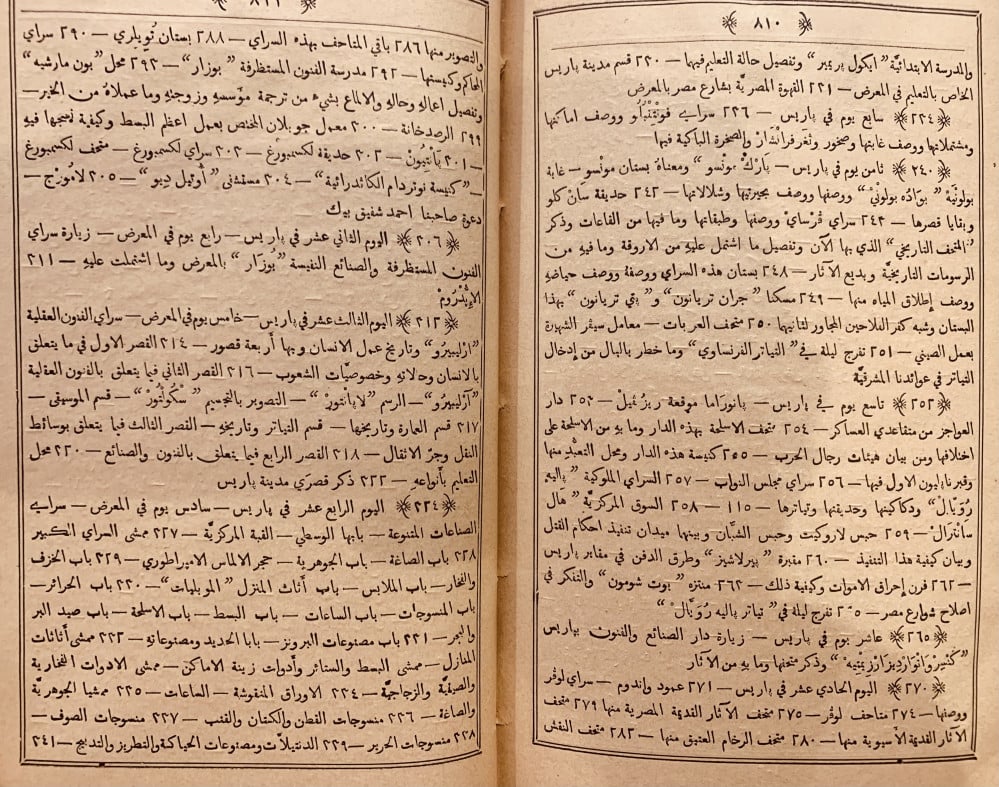 ﴿ ٨١٠ ﴾
والمدرسة الابتدائيَّة "ايكول بريمير" وتفصيل حالة التعليم فيها — ٢٢٠ قسم مدينة باريس
الخاص بالتعليم في المعرض — ٢٢١ القهوة المصريَّة بشارع مصر بالمعرض
﴿٢٢٤﴾ سابع يوم في باريس — ٢٢٦ سراي فونْتنْبلُو ووصف اماكنها
ومشتملاتها ووصف غابتها وصخور وثغر فرانْشار والصخرة الباكية فيها
﴿٢٤٠﴾ ثامن يوم في باريس — "باركْ مونْسو" ومعناهُ بستان مونْسو — غابة
بولونْيَهْ "بوادُه بولونْيْ" ووصفها ووصف بحيرتيها وشلالاتها — ٢٤٢ حديقة سانْ كلو
وبقايا قصرها — ٢٤٣ سراي فُرْسايْ ووصفها وطبقاتها وما فيها من القاعات وذكر
"المتحف التاريخي" الذي بها الآن وتفصيل ما اشتمل عليهِ من الاروقة وما فيهِ من
الرسومات التاريخيَّة وبديع الآثار — ٢٤٨ بستان هذه السراي ووصفهُ ووصف حياضهِ
ووصف إطلاق المياه منها — ٢٤٩ مسكنا "جران تريانون" و"بتي تريانون" بهذا
البستان وشبه كفر الفلاحين المجاور لثانيهما ٢٥٠ متحف العربات — معامل سيفْر الشهيرة
بعمل الصيني — ٢٥١ تفرج ليلة في "التياتر الفرنساوي" وما خطر بالبال من إدخال
التياتر في عوائدنا المشرقيَّة
﴿٢٥٢﴾ تاسع يوم في باريس — بانوراما موقعة رزنْفيلْ — ٢٥٣ دار
العواجز من متقاعدي العساكر — ٢٥٤ متحف الاسلحة بهذه الدار وما بهِ من الاسلحة على
اختلافها ومن بيان هيئات رجال الحرب — ٢٥٥ كنيسة هذه الدار ومحل التعبُّد منها
وقبر نابليون الاول فيها — ٢٥٦ سراي مجلس النواب — ٢٥٧ السراي الملوكية "باليه
رُويّالْ" ودكاكينها وحديقتها وتياترها — ١١٥ — ٢٥٨ السوق المركزيَّة "هال
سانْترال" — ٢٥٩ حبس لاروكيت وحبس الشبَّان وبينهما ميدان تنفيذ احكام القتل
وبيان كيفية هذا التنفيذ — ٢٦٠ مقبرة "بيرلاشيز" وطرق الدفن في مقابر باريس
— ٢٦٢ فرن إحراق الاموات وكيفية ذلك — ٢٦٣ منتزه "بوت شومون" والتفكر في
اصلاح شوارع مصر — تفرج ليلة في "تياتر باليه رُويَّالْ"
﴿٢٦٥﴾ عاشر يوم في باريس — زيارة دار الصنائع والفنون بباريس
وذكر متحفها وما بهِ من الآثار
﴿٢٧٠﴾ اليوم الحادي عشر في باريس — ٢٧١ عمود واندوم — سراي لوفْر
ووصفها — ٢٧٤ متاحف لوفْر — ٢٧٥ متحف الآثار القديمة المصرية منها ٢٧٩ متحف
الآثار القديمة الأسيوية منها — ٢٨٠ متحف الرخام العتيق منها — ٢٨٢ متحف النقش
﴿ ٨١١ ﴾
والتصوير منها ٢٨٦ باقي المتاحف بهذه السراي — ٢٨٨ بستان تُويلري — ٢٩٠ سراي
المحاكم وكنيستها — ٢٩٢ مدرسة الفنون المستظرفة "بوزار" — ٢٩٣ محل "بون مارشيه"
وتفصيل اعمالهِ وحالهِ والالماع بشيء من ترجمة مؤسسهِ وزوجتهِ وما عملاهُ من الخير —
٢٩٩ الرصدخانة — ٢٠٠ معمل جوبلان المختص بعمل اعظم البسط وكيفية نسجها فيهِ
— ٢٠١ بانْتيونْ — ٢٠٢ حديقة لكسمبورغ — ٢٠٣ سراي لكسمبورغ — متحف لكسمبورغ
— "كنيسة نوتردام الكاتدرائية" — ٢٠٤ مستشفى "أوتيل ديو" — ٢٠٥ لامُورْج —
دعوة صاحبنا احمد شفيق بيك
﴿٢٠٦﴾ اليوم الثاني عشر في باريس — رابع يوم في المعرض — زيارة سراي
الفنون المستظرفة والصنائع النفيسة "بوُزار" بالمعرض وما اشتملت عليهِ — ٢١١
الإبُّدْرومْ
﴿٢١٣﴾ اليوم الثالث عشر في باريس — خامس يوم في المعرض — سراي الفنون العقلية
"ارْليبيرو" وتاريخ عمل الانسان وبها أربعة قصور — ٢١٤ القصر الاول في ما يتعلق
بالانسان وحالاتهِ وخصوصيَّات الشعوب — ٢١٦ القصر الثاني فيما يتعلق بالفنون العقلية
"آرْليبيرو" — الرسم "لابانْتورْ" — التصوير بالتجسيم "سْكُولْتورْ" — قسم الموسيقى —
٢١٧ قسم العمارة وتاريخها — قسم التياتر وتاريخهِ — القصر الثالث فيما يتعلق بوسائط
النقل وجرّ الاثقال — ٢١٨ القصر الرابع فيما يتعلق بالفنون والصنائع — ٢٢٠ محل
التعليم بأنواعهِ — ٢٢٢ ذكر قصرَي مدينة باريس
﴿٢٢٤﴾ اليوم الرابع عشر في باريس — سادس يوم في المعرض — سراي
الصناعات المتنوعة — بابها الوسطي — القبة المركزيَّة — ٢٢٧ ممشى السراي الكبير
٢٢٨ باب الصاغة — باب الجوهرية — حجر الالماس الامبراطوري — ٢٢٩ باب الخزف
والفخار — باب الملابس — باب أثاث المنزل "الموبليات" — ٢٣٠ باب الحرائر —
باب المنسوجات — باب الساعات — باب البسط — باب الاسلحة — باب صيد البر
والبحر — ٢٢١ باب مصنوعات البرونز — بابا الحديد ومصنوعاتهِ — ٢٢٣ ممشى أثاثات
المنازل — ممشى البسط والستائر وأدوات زينة الاماكن — ممشى الادوات الفخارية
والصينيَّة والزجاجيَّة — ٢٢٤ الاوراق المنقوشة — الساعات — ٢٢٥ ممشيا الجوهريَّة
والصاغة — ٢٢٦ منسوجات القطن والكتان والقنب — ٢٢٧ منسوجات الصوف —
٢٢٨ منسوجات الحرير — ٢٢٩ الدنتيلات ومصنوعات الحياكة والتطريز والتدبيج — ٢٤١